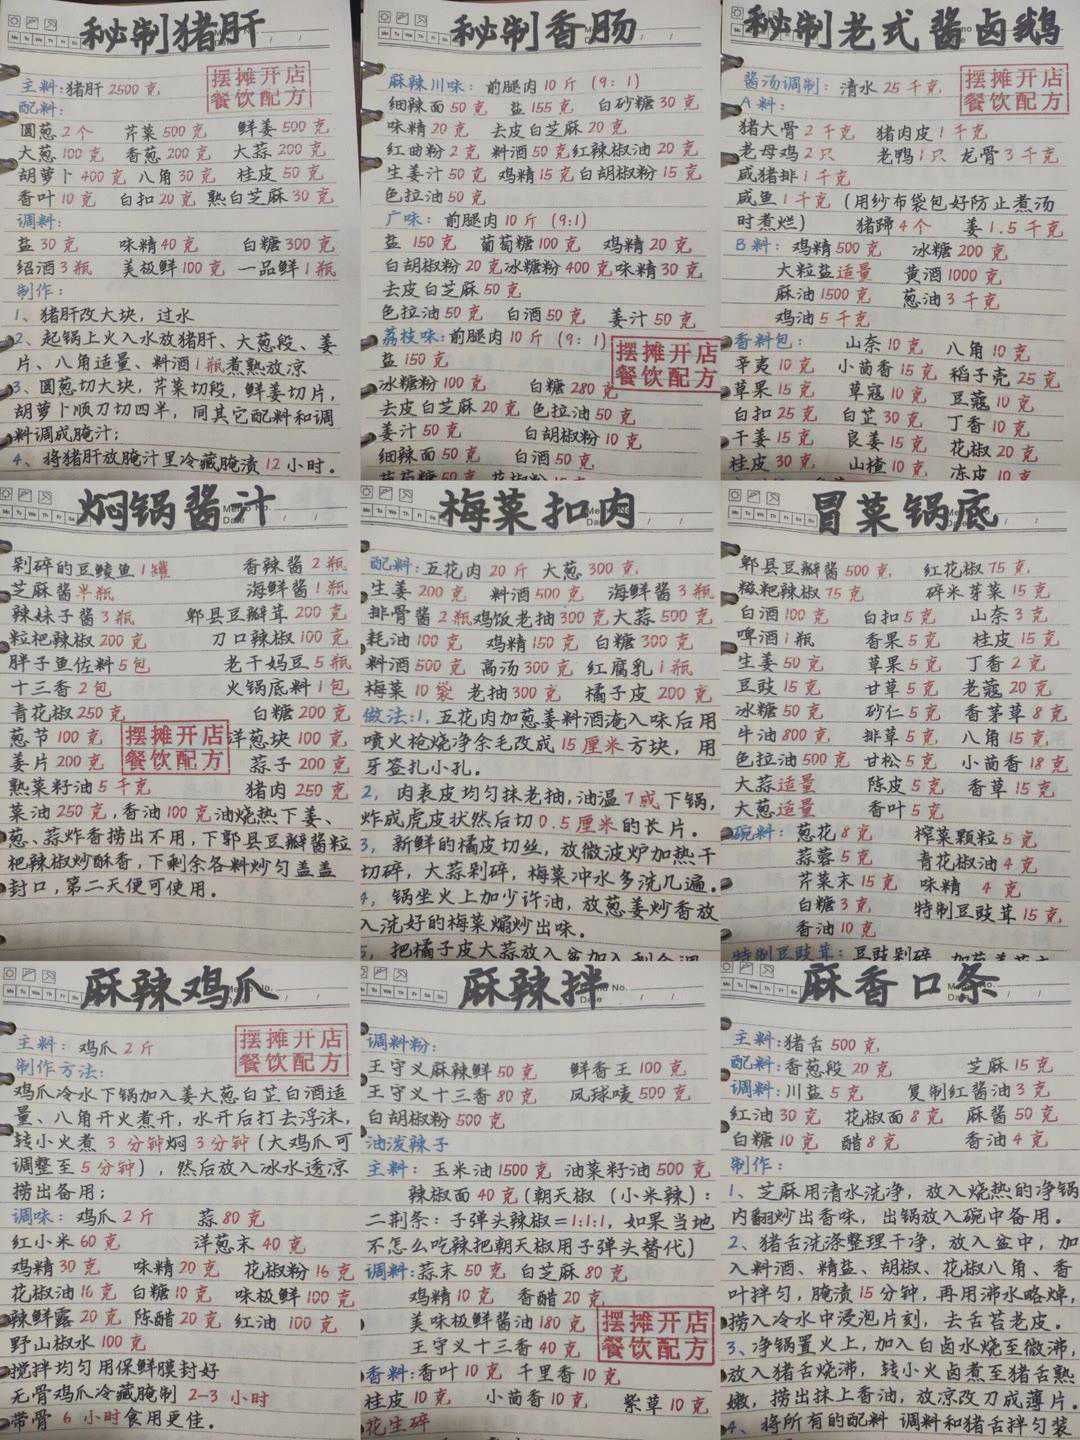 秘制猪肝
摆摊开店
餐饮配方
主料:猪肝 2500 克
配料:
圆葱 2 个 芹菜 500 克 鲜姜 500 克
大葱 100 克 香葱 200 克 大蒜 200 克
胡萝卜 400 克 八角 30 克 桂皮 50 克
香叶 10 克 白扣 20 克 熟白芝麻 30 克
调料:
盐 30 克 味精 40 克 白糖 300 克
绍酒 3 瓶 美极鲜 100 克 一品鲜 1 瓶
制作:
1、猪肝改大块，过水
2、起锅上火入水放猪肝、大葱段、姜
片、八角适量、料酒 1 瓶煮熟放凉
3、圆葱切大块，芹菜切段，鲜姜切片，
胡萝卜顺刀切四半，同其它配料和调
料调成腌汁;
4、将猪肝放腌汁里冷藏腌渍 12 小时.
秘制香肠
麻辣川味: 前腿肉 10 斤 (9: 1)
细辣面 50 克 盐 155 克 白砂糖 30 克
味精 20 克 去皮白芝麻 20 克
红曲粉 2 克 料酒 50 克 红辣椒油 20 克
生姜汁 50 克 鸡精 15 克 白胡椒粉 15 克
色拉油 50 克
广味: 前腿肉 10 斤 (9:1)
盐 150 克 葡萄糖 100 克 鸡精 20 克
白胡椒粉 20 克 冰糖粉 400 克 味精 30 克
去皮白芝麻 50 克
色拉油 50 克 白酒 50 克 姜汁 50 克
荔枝味: 前腿肉 10 斤 (9: 1)
摆摊开店
餐饮配方
盐 150 克
冰糖粉 100 克 白糖 280 克
去皮白芝麻 20 克 色拉油 50 克
姜汁 50 克 白胡椒粉 10 克
细辣面 50 克 白酒 50 克
秘制老式酱卤鹅
摆摊开店
餐饮配方
酱汤调制: 清水 25 千克
A 料:
猪大骨 2 千克 猪肉皮 1 千克
老母鸡 2 只 老鸭 1 只 龙骨 3 千克
咸猪排 1 千克
咸鱼 1 千克 (用纱布袋包好防止煮汤
时煮烂) 猪蹄 4 个 姜 1.5 千克
B 料: 鸡精 500 克 冰糖 200 克
大粒盐适量 黄酒 1000 克
麻油 1500 克 葱油 3 千克
鸡油 5 千克
香料包: 山奈 10 克 八角 10 克
辛夷 10 克 小茴香 15 克 稻子壳 25 克
草果 15 克 草寇 10 克 豆蔻 10 克
白扣 25 克 白芷 30 克 丁香 10 克
干姜 15 克 良姜 15 克 花椒 20 克
桂皮 30 克 山楂 10 克 冻皮 10 克
焖锅酱汁
剁碎的豆鲮鱼 1 罐 香辣酱 2 瓶
芝麻酱半瓶 海鲜酱 1 瓶
辣妹子酱 3 瓶 郫县豆瓣茸 200 克
粒粑辣椒 200 克 刀口辣椒 100 克
胖子鱼佐料 5 包 老干妈豆 5 瓶
十三香 2 包 火锅底料 1 包
青花椒 250 克 白糖 200 克
葱节 100 克 洋葱块 100 克
姜片 200 克 蒜子 200 克
摆摊开店
餐饮配方
熟菜籽油 5 千克 猪肉 250 克
菜油 250 克，香油 100 克油烧热下姜、
葱、蒜炸香捞出不用，下郭县豆瓣酱粒
杷辣椒炒酥香，下剩余各料炒匀盖盖
封口，第二天便可使用.
梅菜扣肉
配料:五花肉 20 斤 大葱 300 克
生姜 200 克 料酒 500 克 海鲜酱 3 瓶
排骨酱 2 瓶鸡饭老抽 300 克 大蒜 500 克
耗油 100 克 鸡精 150 克 白糖 300 克
料酒 500 克 高汤 300 克 红腐乳 1 瓶
梅菜 10 袋 老抽 300 克 橘子皮 200 克
做法:1, 五花肉加葱姜料酒淹入味后用
喷火枪烧净余毛改成 15 厘米方块，用
牙签扎小孔.
2, 肉表皮均匀抹老抽,油温 7 或下锅，
炸成虎皮状然后切 0.5 厘米的长片.
3, 新鲜的橘皮切丝，放微波炉加热干
切碎，大蒜剁碎，梅菜冲水多洗几遍.
4, 锅坐火上加少许油，放葱姜炒香放
入洗好的梅菜煸炒出味.
5, 把橘子皮大蒜放入盆加入剩余调
冒菜锅底
郫县豆瓣酱 500 克 红花椒 75 克
糍粑辣椒 75 克 碎米芽菜 15 克
白酒 100 克 白扣 5 克 山奈 3 克
啤酒 1 瓶 香果 5 克 桂皮 15 克
生姜 50 克 草果 5 克 丁香 2 克
豆豉 15 克 甘草 5 克 老蔻 20 克
冰糖 50 克 砂仁 5 克 香茅草 8 克
牛油 800 克 排草 5 克 八角 15 克
色拉油 500 克 甘松 5 克 小茴香 18 克
大蒜适量 陈皮 5 克 香草 15 克
大葱适量 香叶 5 克
碗料: 葱花 8 克 榨菜颗粒 5 克
蒜蓉 5 克 青花椒油 4 克
芹菜末 15 克 味精 4 克
白糖 3 克 特制豆豉茸 15 克
香油 10 克
麻辣鸡爪
摆摊开店
餐饮配方
主料: 鸡爪 2 斤
制作方法:
鸡爪冷水下锅加入姜大葱白芷白酒适
量、八角开火煮开，水开后打去浮沫，
转小火煮 3 分钟焖 3 分钟 (大鸡爪可
调整至 5 分钟)，然后放入冰水透凉
捞出备用;
调味: 鸡爪 2 斤 蒜 80 克
红小米 60 克 洋葱末 40 克
鸡精 30 克 味精 20 克 花椒粉 16 克
花椒油 16 克 白糖 10 克 味极鲜 100 克
辣鲜露 20 克 陈醋 20 克 红油 100 克
野山椒水 100 克
搅拌均匀用保鲜膜封好
无骨鸡爪冷藏腌制 2-3 小时
带骨 6 小时食用更佳.
麻辣拌
调料粉:
王守义麻辣鲜 50 克 鲜香王 100 克
王守义十三香 80 克 凤球唛 500 克
白胡椒粉 500 克
油泼辣子
主料: 玉米油 1500 克 油菜籽油 500 克
辣椒面 40 克 (朝天椒 (小米辣):
二荆条: 子弹头辣椒=1:1:1, 如果当地
不怎么吃辣把朝天椒用子弹头替代)
调料:蒜末 50 克 白芝麻 80 克
鸡精 10 克 香醋 20 克
美味极鲜酱油 180 克
王守义十三香 40 克
摆摊开店
餐饮配方
香料:香叶 10 克 千里香 10 克
桂皮 10 克 小茴香 10 克 紫草 10 克
花生碎
麻香口条
主料:猪舌 500 克
配料:香葱段 20 克 芝麻 15 克
调料:川盐 5 克 复制红酱油 3 克
红油 30 克 花椒面 8 克 麻酱 50 克
白糖 10 克 醋 8 克 香油 4 克
制作:
1、芝麻用清水洗净，放入烧热的净锅
内翻炒出香味，出锅放入碗中备用.
2、猪舌洗涤整理干净，放入盆中，加
入料酒、精盐、胡椒、花椒八角、香
叶拌匀，腌渍 15 分钟，再用沸水略焯，
捞入冷水中浸泡片刻，去舌苔老皮.
3、净锅置火上，加入白卤水烧至微沸，
放入猪舌烧沸，转小火卤煮至猪舌熟
嫩，捞出抹上香油，放凉改刀成薄片.
4、将所有的配料 调料和猪舌拌匀装